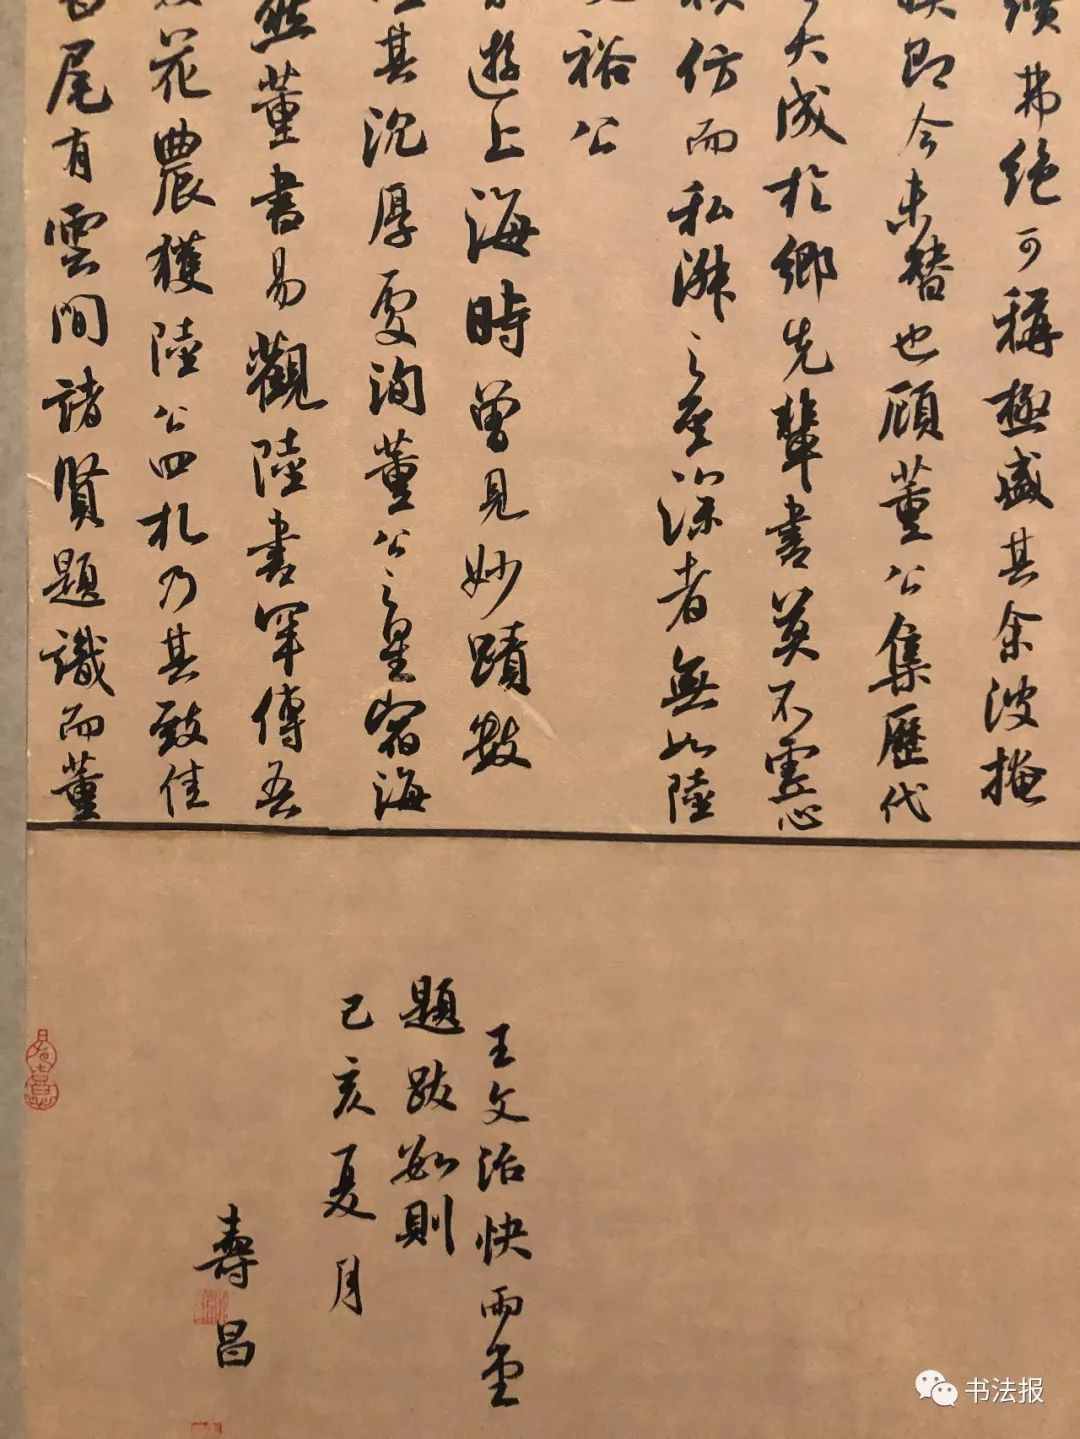 弗绝可稱極盛其余波掩
即今未替也顾董公集歷代
大成於鄉先輩書莫不靈心
仿而私淑之至深者無如陸
裕公
遊上海時曾見妙蹟数
其沉厚處洵董公之皇宿海
董書易觀陸書罕傳吾
花農獲陸公四札乃其致佳
尾有雲間諸賢題識而董
王文治快雨堂
題跋数則
己亥夏月
壽昌
书法报